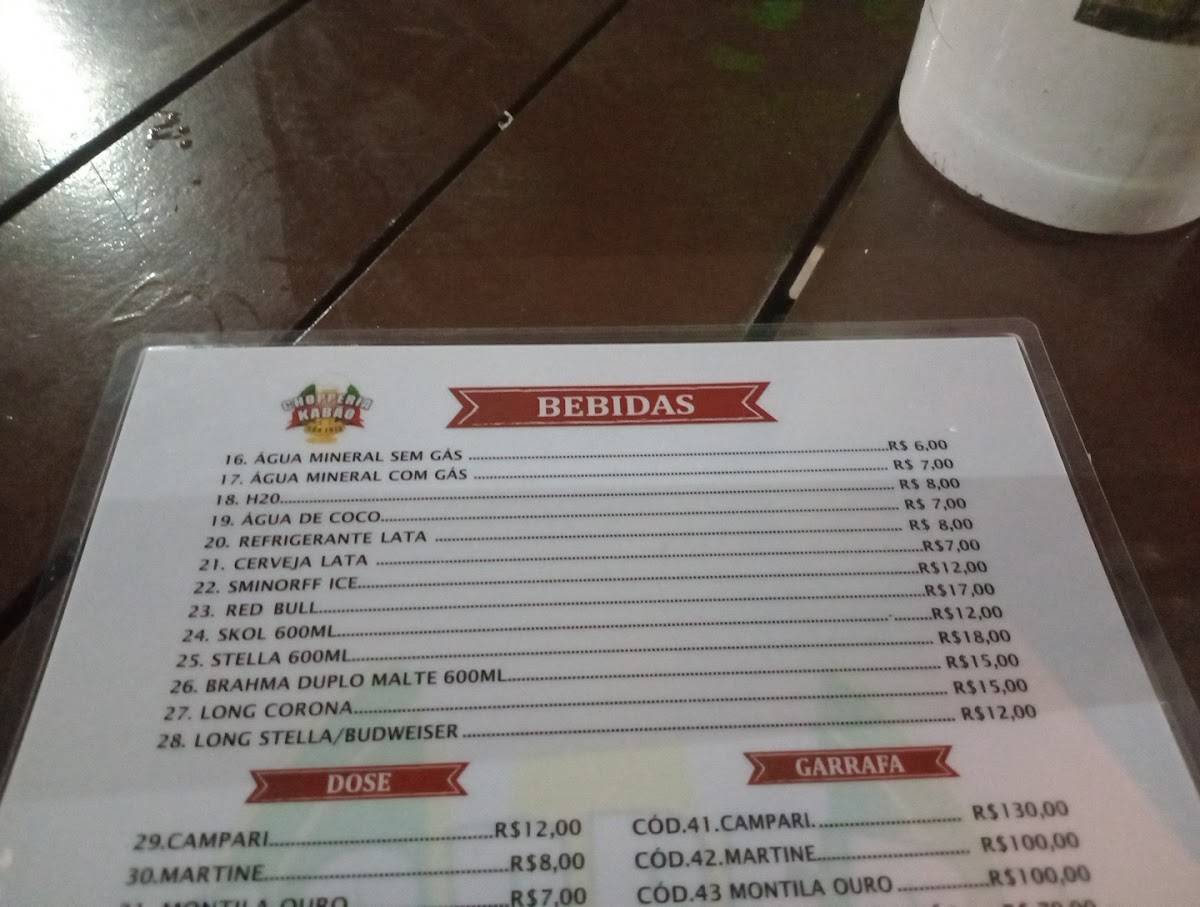 CHOPPERIA
KABÃO
BEBIDAS
16. ÁGUA MINERAL SEM GÁS ........ R$ 6,00
17. ÁGUA MINERAL COM GÁS ........ R$ 7,00
18. H20........ R$ 8,00
19. ÁGUA DE COCO........ R$ 7,00
20. REFRIGERANTE LATA ........ R$ 8,00
21. CERVEJA LATA ........R$7,00
22. SMINORFF ICE........R$12,00
23. RED BULL........R$17,00
24. SKOL 600ML........R$12,00
25. STELLA 600ML........ R$18,00
26. BRAHMA DUPLO MALTE 600ML........ R$15,00
27. LONG CORONA........ R$15,00
28. LONG STELLA/BUDWEISER ........ R$12,00
DOSE
29.CAMPARI........R$12,00
30.MARTINE........R$8,00
31. MONTILA OURO........R$7,00
GARRAFA
CÓD.41.CAMPARI........ R$130,00
CÓD.42.MARTINE........ R$100,00
CÓD.43 MONTILA OURO ........R$100,00